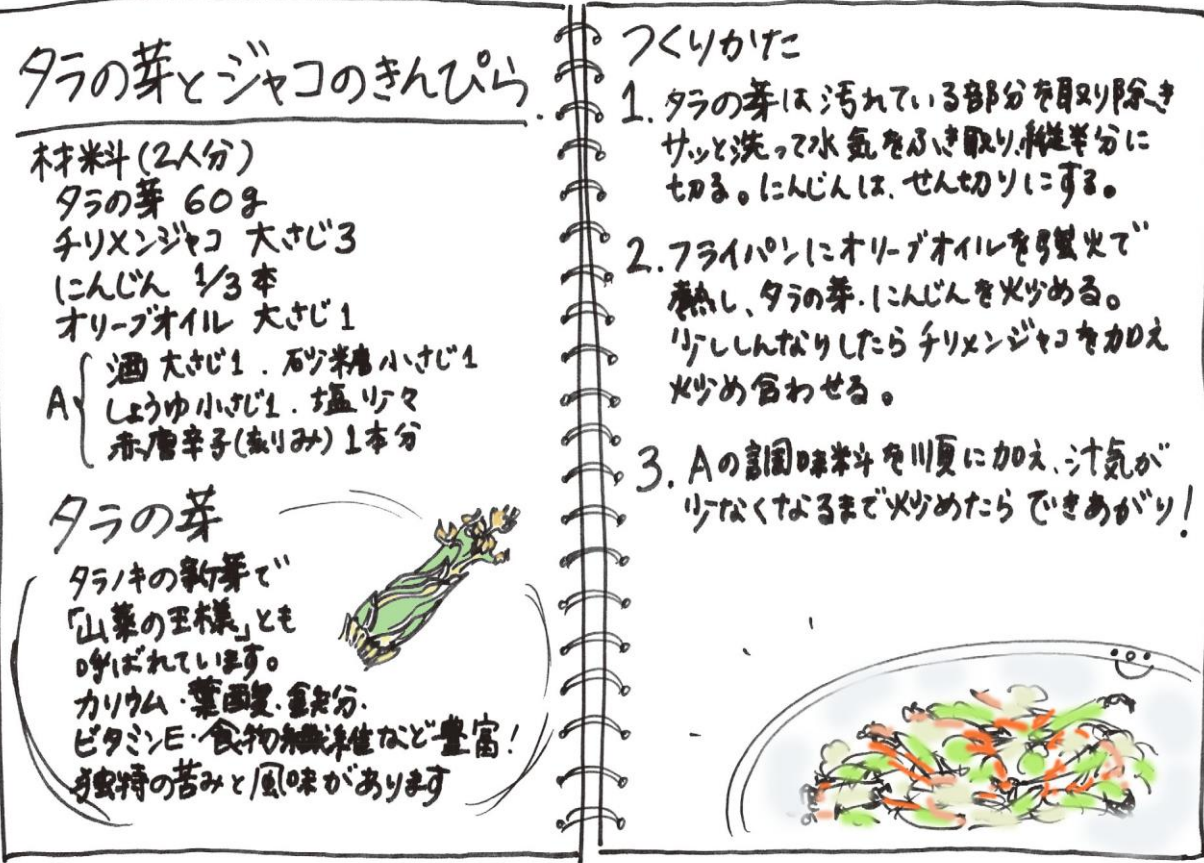 タラの芽とジャコのきんぴら
材料(2人分)
タラの芽 60g
チリメンジャコ 大さじ3
にんじん 1/3本
オリーブオイル 大さじ1
A 酒 大さじ1 . 砂糖 小さじ1
しょうゆ 小さじ1 . 塩 少々
赤唐辛子(刻み) 1本分
タラの芽
タラノキの新芽で
「山菜の王様」とも
呼ばれています。
カリウム・葉酸・鉄分・
ビタミンE・食物繊維など豊富!
独特の苦みと風味があります
つくりかた
1. タラの芽は汚れている部分を取り除き
サッと洗って水気をふき取り、縦半分に
切る。にんじんは、せん切りにする。
2. フライパンにオリーブオイルを強火で
熱し、タラの芽、にんじんを炒める。
少ししんなりしたらチリメンジャコを加え
炒め合わせる。
3. Aの調味料を順に加え、汁気が
少なくなるまで炒めたらできあがり!